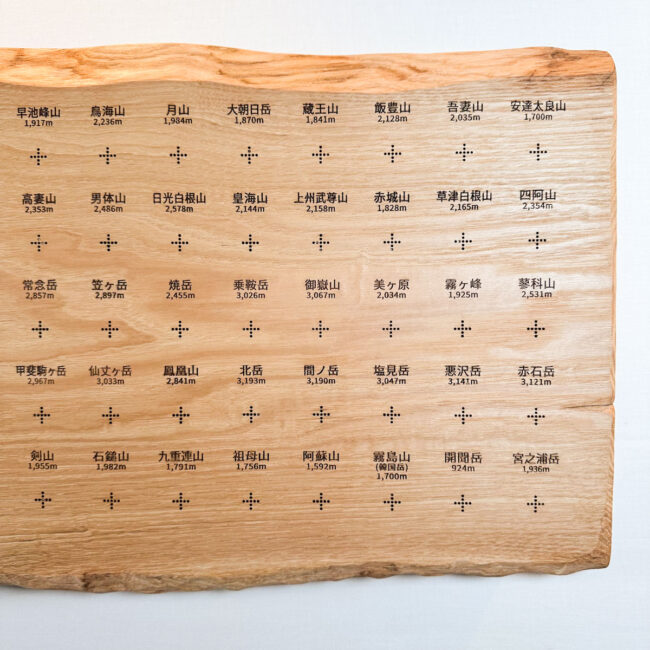 早池峰山 鳥海山 月山 大朝日岳 蔵王山 飯豊山 吾妻山 安達太良山
1,917m 2,236m 1,984m 1,870m 1,841m 2,128m 2,035m 1,700m
高妻山 男体山 日光白根山 皇海山 上州武尊山 赤城山 草津白根山 四阿山
2,353m 2,486m 2,578m 2,144m 2,158m 1,828m 2,165m 2,354m
常念岳 笠ヶ岳 焼岳 乗鞍岳 御嶽山 美ヶ原 霧ヶ峰 蓼科山
2,857m 2,897m 2,455m 3,026m 3,067m 2,034m 1,925m 2,531m
甲斐駒ヶ岳 仙丈ヶ岳 鳳凰山 北岳 間ノ岳 塩見岳 悪沢岳 赤石岳
2,967m 3,033m 2,841m 3,193m 3,190m 3,047m 3,141m 3,121m
剣山 石鎚山 九重連山 祖母山 阿蘇山 霧島山 開聞岳 宮之浦岳
1,955m 1,982m 1,791m 1,756m 1,592m (韓国岳) 924m 1,936m
1,700m